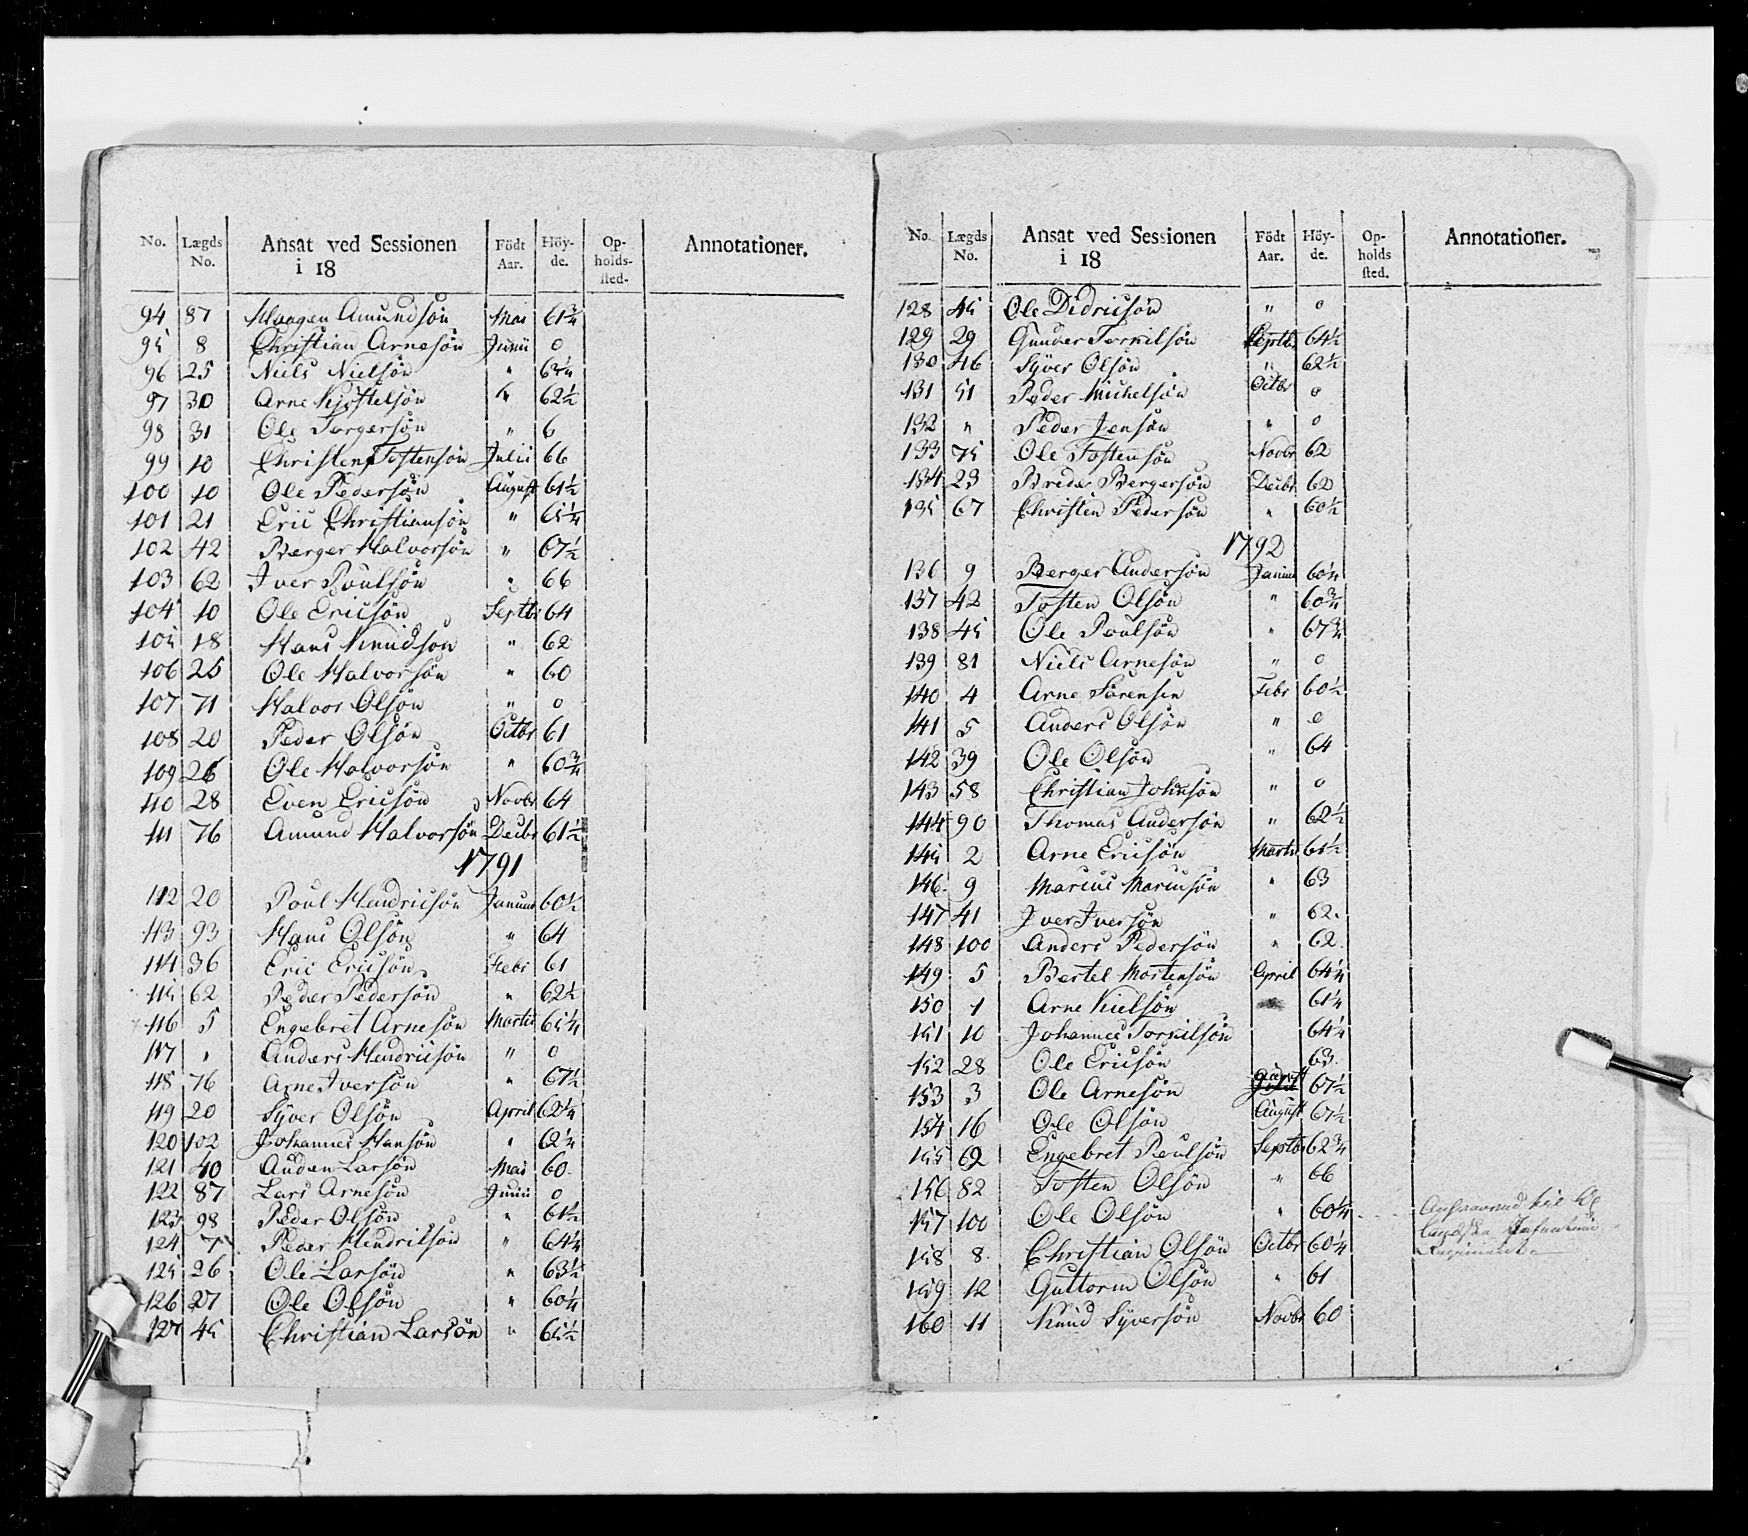 No. Lægds No. Ansat ved Sessionen i 18 Födt Aar. Höyde. Opholdssted. Annotationer.
94 87 Haagen Amundsøn Mai 61 3/4
95 8 Christian Arnesøn Junii 0
96 25 Niels Nielsøn "
97 30 Arne Kjøstelsøn " 62 1/2
98 31 Ole Torgersøn " 6
99 10 Christen Tostensøn Julii 66
100 10 Ole Pedersøn August 61 1/2
101 21 Eric Christiansøn " 65 1/4
102 42 Berger Halvorsøn " 67 1/2
103 62 Iver Poulsøn " 66
104 10 Ole Ericsøn Septbr 64
105 18 Hans Knudsøn " 62
106 25 Ole Halvorsøn " 60
107 71 Halvor Olsøn " 0
108 20 Peder Olsøn Octbr 61
109 26 Ole Halvorsøn " 60 3/4
110 28 Even Ericsøn Novbr 64
111 76 Amund Halvorsøn Decbr 61 1/2
1791
112 20 Poul Hendricsøn Januar 60 1/2
113 93 Hans Olsøn " 64
114 36 Eric Ericsøn Febr 61
115 62 Peder Pedersøn " 62 1/2
116 5 Engebret Arnesøn Martii 65 1/4
117 " Anders Hendricsøn " 0
118 76 Arne Iversøn " 67 1/2
119 20 Syver Olsøn April 62 1/4
120 102 Johannes Hansøn " 62 1/4
121 40 Auden Larsøn Mai 60
122 87 Lars Arnesøn Junii 0
123 98 Peder Olsøn " 61 1/2
124 7 Peder Hendriksøn " 64 1/4
125 26 Ole Larsøn " 63 1/2
126 27 Ole Olsøn " 60 1/4
127 45 Christian Larsøn " 65 1/2
No. Lægds No. Ansat ved Sessionen i 18 Födt Aar. Höyde. Opholds sted. Annotationer.
128 45 Ole Didricsøn " 0
129 29 Gunder Torkilsøn Septbr 64 1/2
130 46 Syver Olsøn " 62 1/2
131 51 Peder Michelsøn Octbr 0
132 " Peder Jensøn " 0
133 75 Ole Tostensøn Novbr 62
134 23 Brede Bergersøn Decbr 62
135 67 Christen Pedersøn " 60 1/2
1792
136 9 Berger Andersøn Januar 60 1/4
137 42 Tosten Olsøn " 60 3/4
138 45 Ole Poulsøn " 67 3/4
139 81 Niels Arnesøn " 0
140 4 Arne Sørensen Febr 60 1/2
141 5 Anders Olsøn " 0
142 39 Ole Olsøn " 64
143 58 Christian Johnsøn " 0
144 90 Thomas Andersøn " 62 1/2
145 2 Arne Ericsøn Martii 61 1/2
146 9 Marcus Marcusøn " 63
147 41 Iver Iversøn " 62
148 100 Anders Pedersøn " 62
149 5 Bertel Mortensøn April 64 1/4
150 1 Arne Nielsøn 61 1/4
151 10 Johannes Torkilsøn 64 1/4
152 28 Ole Ericsøn 63
153 3 Ole Arnesøn 67 1/2
154 16 Ole Olsøn August 67 1/2
155 62 Engebret Poulsøn Septbr 62 3/4
156 82 Tosten Olsøn " 66
157 100 Ole Olsøn " 60 1/4
158 8 Christian Olsøn Octbr 60 1/4
159 12 Guttorm Olsøn " 61
160 11 Knud Syversøn Novbr 60